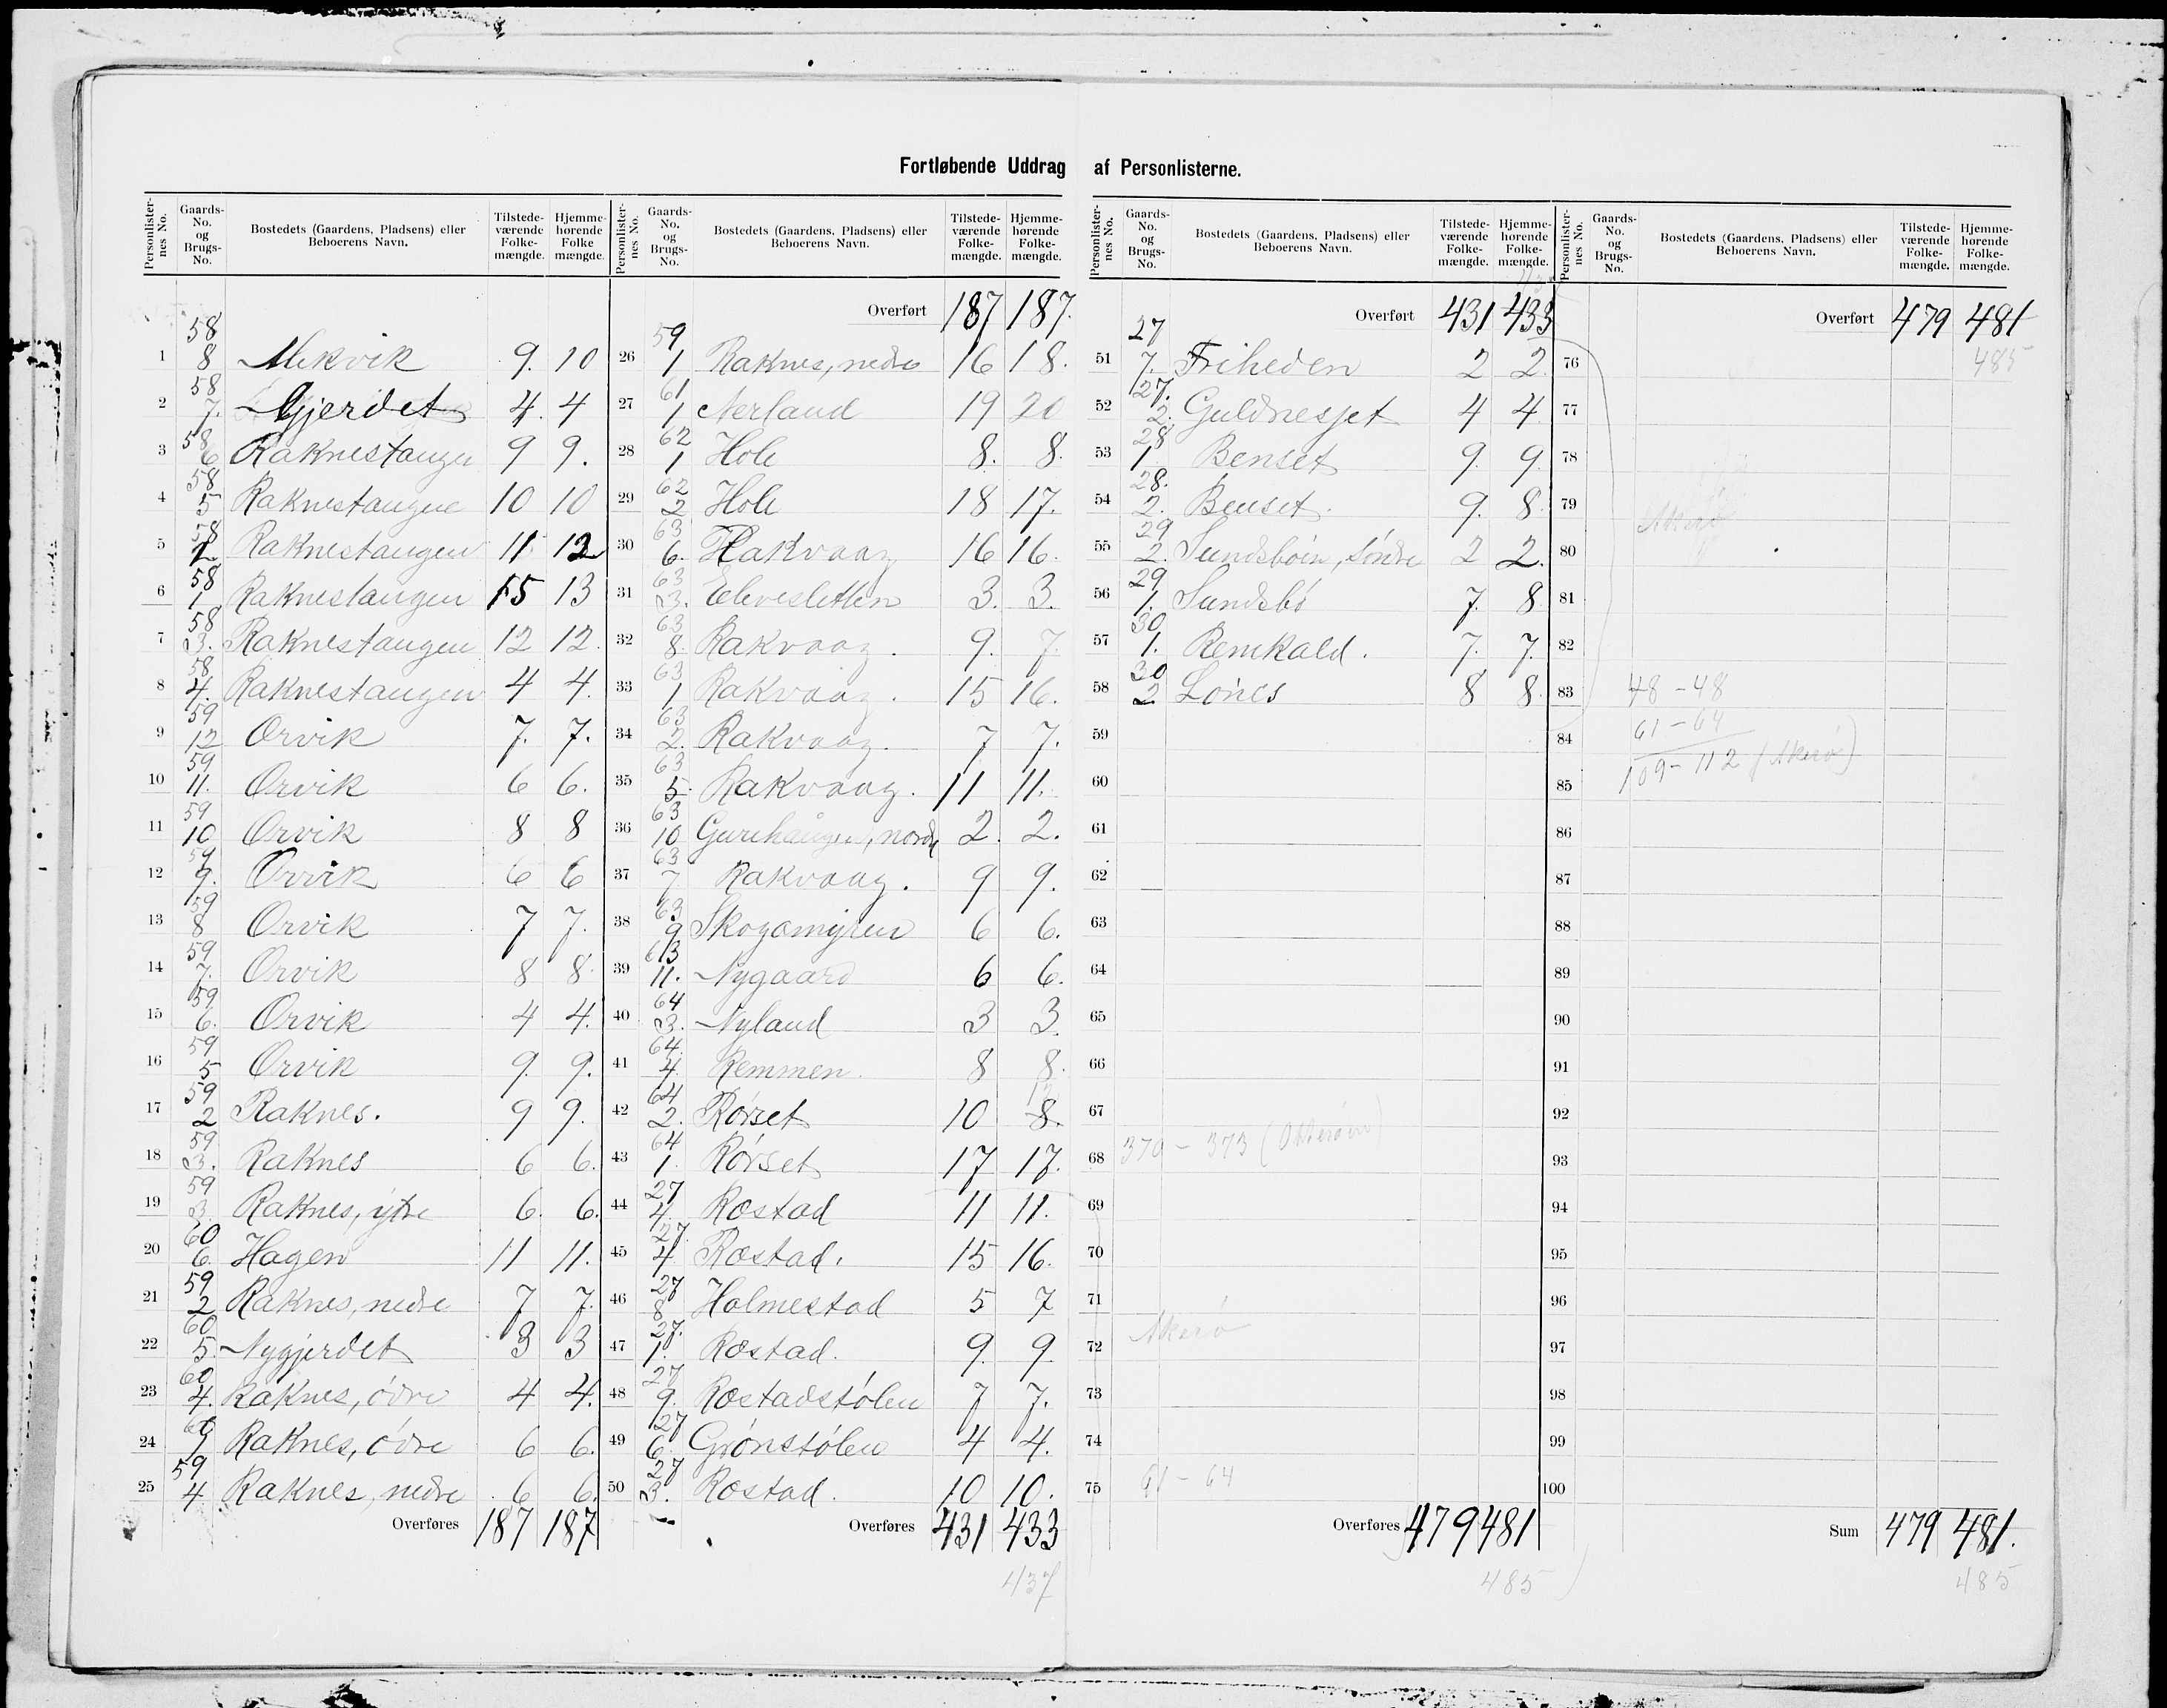 Fortløbende Uddrag af Personlisterne.
Personlisternes No. Gaards-No. og Brugs-No. Bostedets (Gaardens, Pladsens) eller Beboerens Navn. Tilstedeværende Folkemængde. Hjemmehørende Folkemængde.
1 58 8 Mekvik 9. 10
2 58 7. Gjerdet 4. 4
3 58 6 Raknestangen 9 9.
4 58 5 Raknestangene 10 10
5 58 2 Raknestangen 11 12
6 58 1 Raknestangen 15 13
7 58 3. Raknestangen 12 12.
8 58 4. Raknestangen 4 4.
9 59 12 Orvik 7. 7.
10 59 11. Orvik 6 6.
11 59 10 Orvik 8 8
12 59 9. Orvik 6 6
13 59 8 Orvik 7 7.
14 59 7. Orvik 8 8.
15 59 6. Orvik 4 4.
16 59 5 Orvik 9. 9.
17 59 2 Raknes. 9 9.
18 59 3. Raknes 6 6.
19 59 3. Raknes, ytre 6. 6.
20 60 6. Hagen 11 11.
21 59 2 Raknes, nedre 7 7.
22 60 5. Nygjerdet 3 3
23 60 4. Raknes, övre 4 4.
24 60 Raknes, övre 6 6.
25 59 4 Raknes, nedre 6 6.
Overføres 187 187
Personlisternes No. Gaards-No. og Brugs-No. Bostedets (Gaardens, Pladsens) eller Beboerens Navn. Tilstedeværende Folkemængde. Hjemmehørende Folkemængde.
Overført 187 187.
26 59 1 Raknes, nedre 16 18.
27 61 1 Nerland 19 20
28 62 1 Hole 8. 8.
29 62 2 Hole 18 17.
30 63 6. Rakvaag 16 16.
31 63 3. Elvesletten 3. 3.
32 63 8. Rakvaag. 9. 7.
33 63 1 Rakvaag. 15 16.
34 63 2. Rakvaag. 7 7.
35 63 5. Rakvaag. 11 11.
36 63 10 nordre 2. 2.
37 63 7 Rakvaag. 9 9.
38 63 9 Skogamyren 6 6.
39 63 11. Nygaard 6 6.
40 64 3. Nyland 3 3.
41 64. 4. Remmen. 8 8.
42 64 2. Rørset 10 8. 12
43 64 1. Rørset 17 17.
44 27 4. Røstad 11 11.
45 27. 4 Røstad. 15 16.
46 27 8 Holmestad 5 7
47 27. 1. Røstad. 9. 9.
48 27 9. Røstadstølen 7 7.
49 27 6. Grønstølen 4 4.
50 27 3. Røstad. 10 10.
Overføres 431 433
437
Personlisternes No. Gaards-No. og Brugs-No. Bostedets (Gaardens, Pladsens) eller Beboerens Navn. Tilstedeværende Folkemængde. Hjemmehørende Folkemængde.
Overført 431 433
51 27 7. Friheden 2 2.
52 27. 2. Guldneset 4 4.
53 28 1. Benset 9. 9.
54 28. 2. Benset. 9. 8.
55 29 2. Sundsböen, söndre 2 2.
56 29 1. Sundsbö 7. 8.
57 30 1. Remkald. 7. 7.
58 30 2. Lönes 8 8.
59
60
61
62
63
64
65
66
67
68 370 - 373 (Otteröen)
69
70
71
72 Akerö
73
74
75 61 - 64
Overføres 479 481
485
Personlisternes No. Gaards-No. og Brugs-No. Bostedets (Gaardens, Pladsens) eller Beboerens Navn. Tilstedeværende Folkemængde. Hjemmehørende Folkemængde.
Overført 479 481
76 485
77
78
79 Akerö
80
81
82
83 48 - 48
84 61 - 64
85 109 - 112 (Akerö)
86
87
88
89
90
91
92
93
94
95
96
97
98
99
100
Sum 479 481.
485